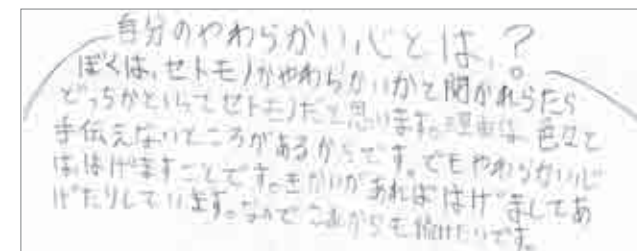 自分のやわらかい心とは、?
ぼくは、セトモノかやわらかいかと聞かれらたら
どっちかといってセトモノだと思います。理由は、色々と
手伝えないところがあるからです。でもやわらかい心
は、はげますことです。きかいがあればはげましてあ
げたりしています。なのでこれからも続けたいです。